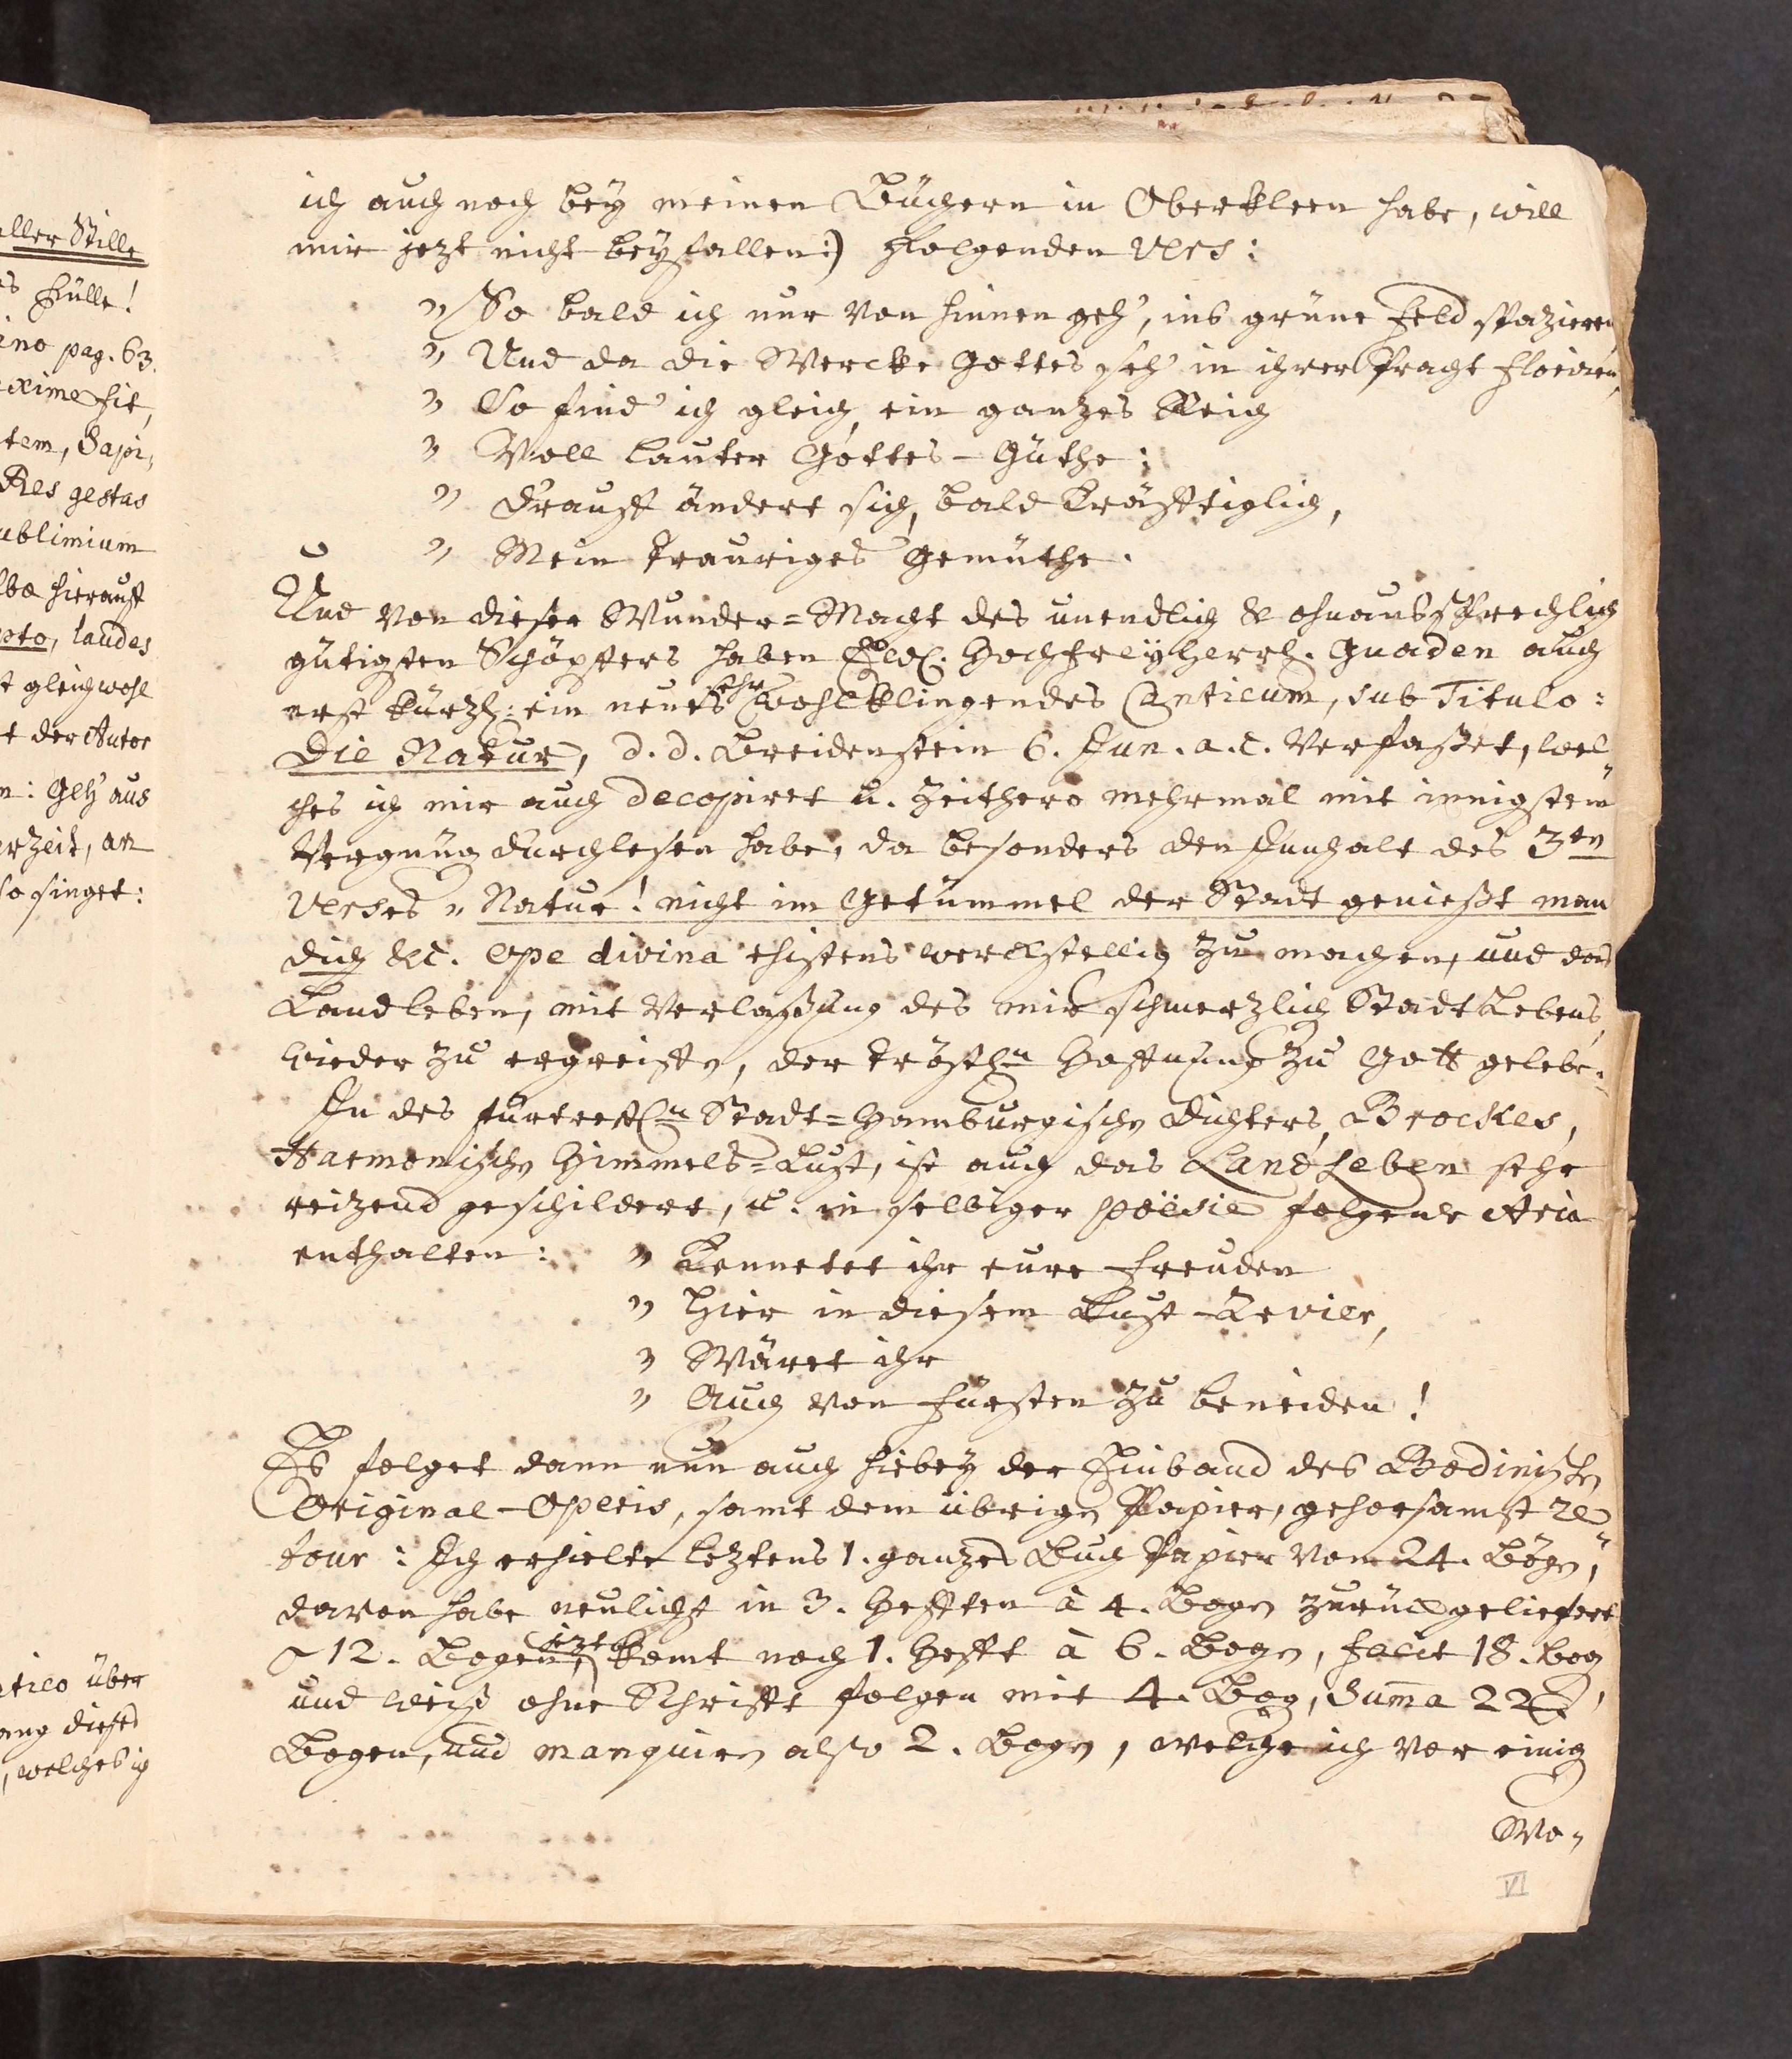 ich auch noch bey meinen Büchern in Oberkleen habe, will
mir jezt nicht beyfallen:) folgenden Vers:
" So bald ich nur von hinnen geh', ins grüne Feld spazieren
" Und da die Wercke Gottes seh' in ihrer Pracht floriren,
" So find' ich gleich, ein ganzes Reich
" Voll lauter Gottes-Güthe;
" Drauff ändert sich, bald kräfftiglich,
" Mein trauriges Gemüthe.
Und von dieser Wunder=Macht des unendlich & ohnaussprechlich
gütigsten Schöpffers haben Hochfreyherrl. Gnaden auch
erst kürzl: ein neues sehr wohlklingendes Canticum, sub Titulo:
Die Natur, d.d. Breidenstein 6. Jun. a.c. verfaßet, wel„
ches ich mir auch decopiret u. zeithero mehrmal mit innigstem
Vergnüg durchlesen habe, da besonders den Innhalt des 3ten
Verses „ Natur! nicht im Getümmel der Stadt genießt man
dich &c. ope divina ehistens werckstellig zu machen, und das
Landleben, mit Verlaßung des mir schmerzlich StadtLebens,
wieder zu ergreiffen, der tröstln Hoffnung zu Gott gelebe.
In des fürtreffln Stadt=Hamburgischen Dichters, Brockes,
Harmonischen Himmels=Lust, ist auch das LandLeben sehr
reizend geschildert, u. in selbiger Poësie folgende Aria
enthalten: " Kennetet ihr eure Freuden
" Hier in diesem Lust-Revier,
" Wäret ihr
" Auch von Fürsten zu beneiden!
Es folget dann nun auch hiebey der Einband des Bodinischen
Original-Operis, samt dem übrigen Papier, gehorsamst re„
tour: Ich erhielte leztens 1. ganzes Buch Papier von 24. Bögen,
davon habe neulicht in 3. Hefften à 4. Bogen zurückgeliefert
12. Bogen, jezto komt noch 1. Hefft à 6. Bogen, facit 18. Bog
und weiß ohne Schrifft folgen mit 4. Bog, Suma 22.
Bogen, und manquiren also 2. Bogen, welche ich vor einig
Wo„
VI
aller Stille
Fülle!
pag. 63.
fit,
Sapi„
Res gestas
hierauff
laudes
gleichwohl
der Autor
Geh' aus
an
so singet:
über
dieses
, welches ich